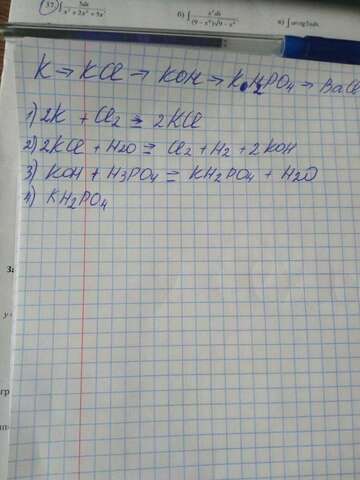 37. ∫ 5dx / x³ + 2x² + 5x
б) ∫ x²dx / (9 − x²)√9 − x²
в) ∫ arctg2xdx.
K → KCl → KOH → KH2PO4 → BaCl
1) 2K + Cl2 = 2KCl
2) 2KCl + H2O = Cl2 + H2 + 2KOH
3) KOH + H3PO4 = KH2PO4 + H2O
4) KH2PO4
За
гр